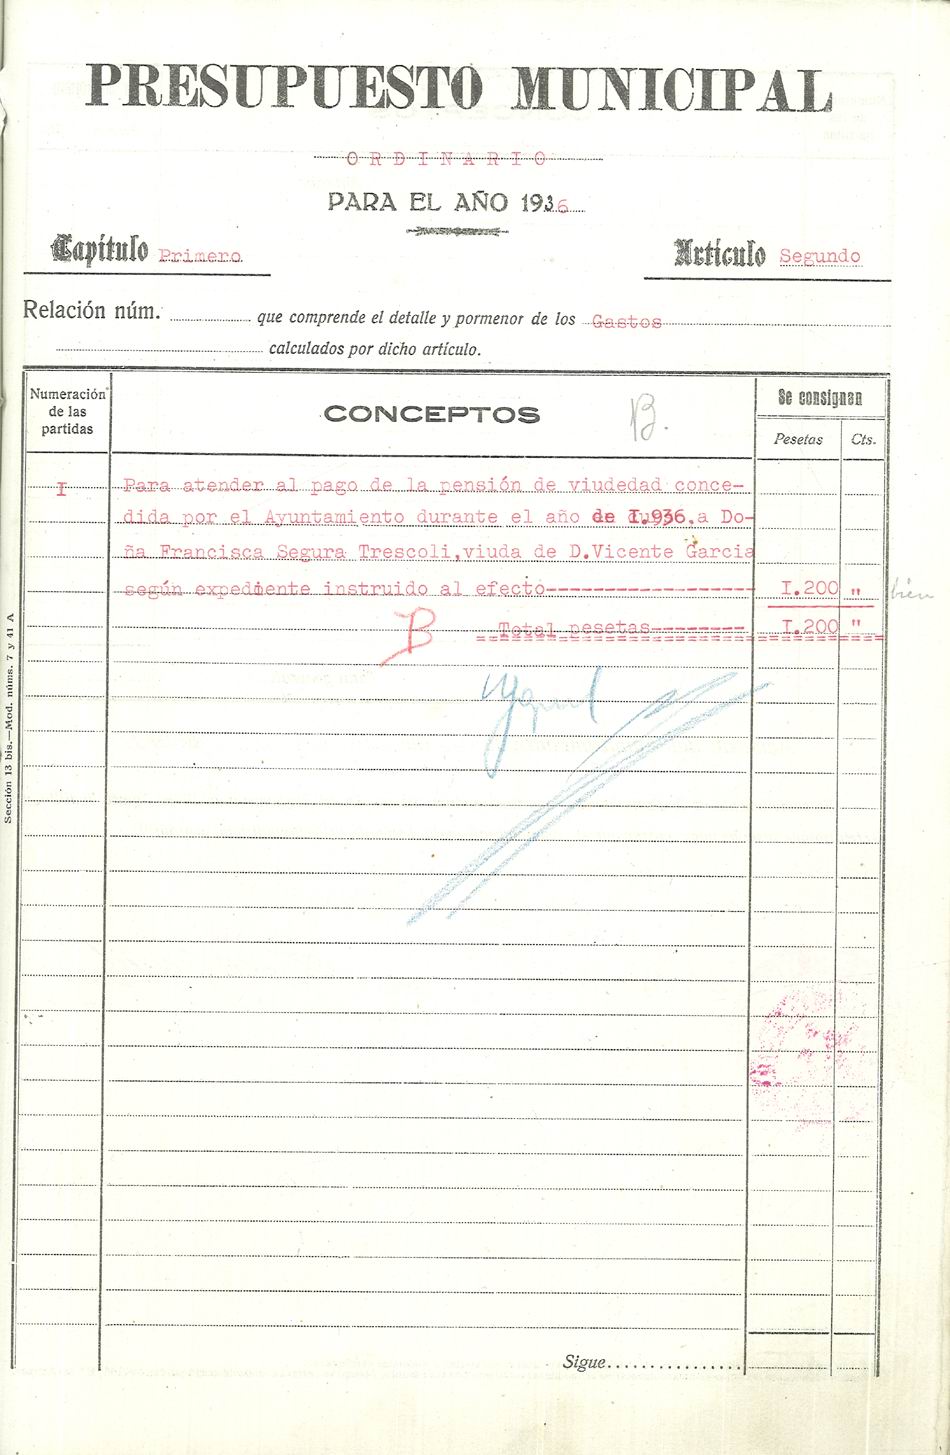 PRESUPUESTO MUNICIPAL
ORDINARIO
PARA EL AÑO 1936
Capítulo Primero
Artículo Segundo
Relación núm. que comprende el detalle y pormenor de los Gastos
calculados por dicho artículo.
Numeración de las partidas
CONCEPTOS
B.
Se consignan
Pesetas Cts.
I Para atender al pago de la pensión de viudedad conce-
dida por el Ayuntamiento durante el año de I.936, a Do-
ña Francisca Segura Trescoli,viuda de D.Vicente Garcia
según expediente instruido al efecto--------------------- I.200 "
bien
B
Total pesetas-------- I.200 "
Sigue
Sección 13 bis.—Mod. núms. 7 y 41 A